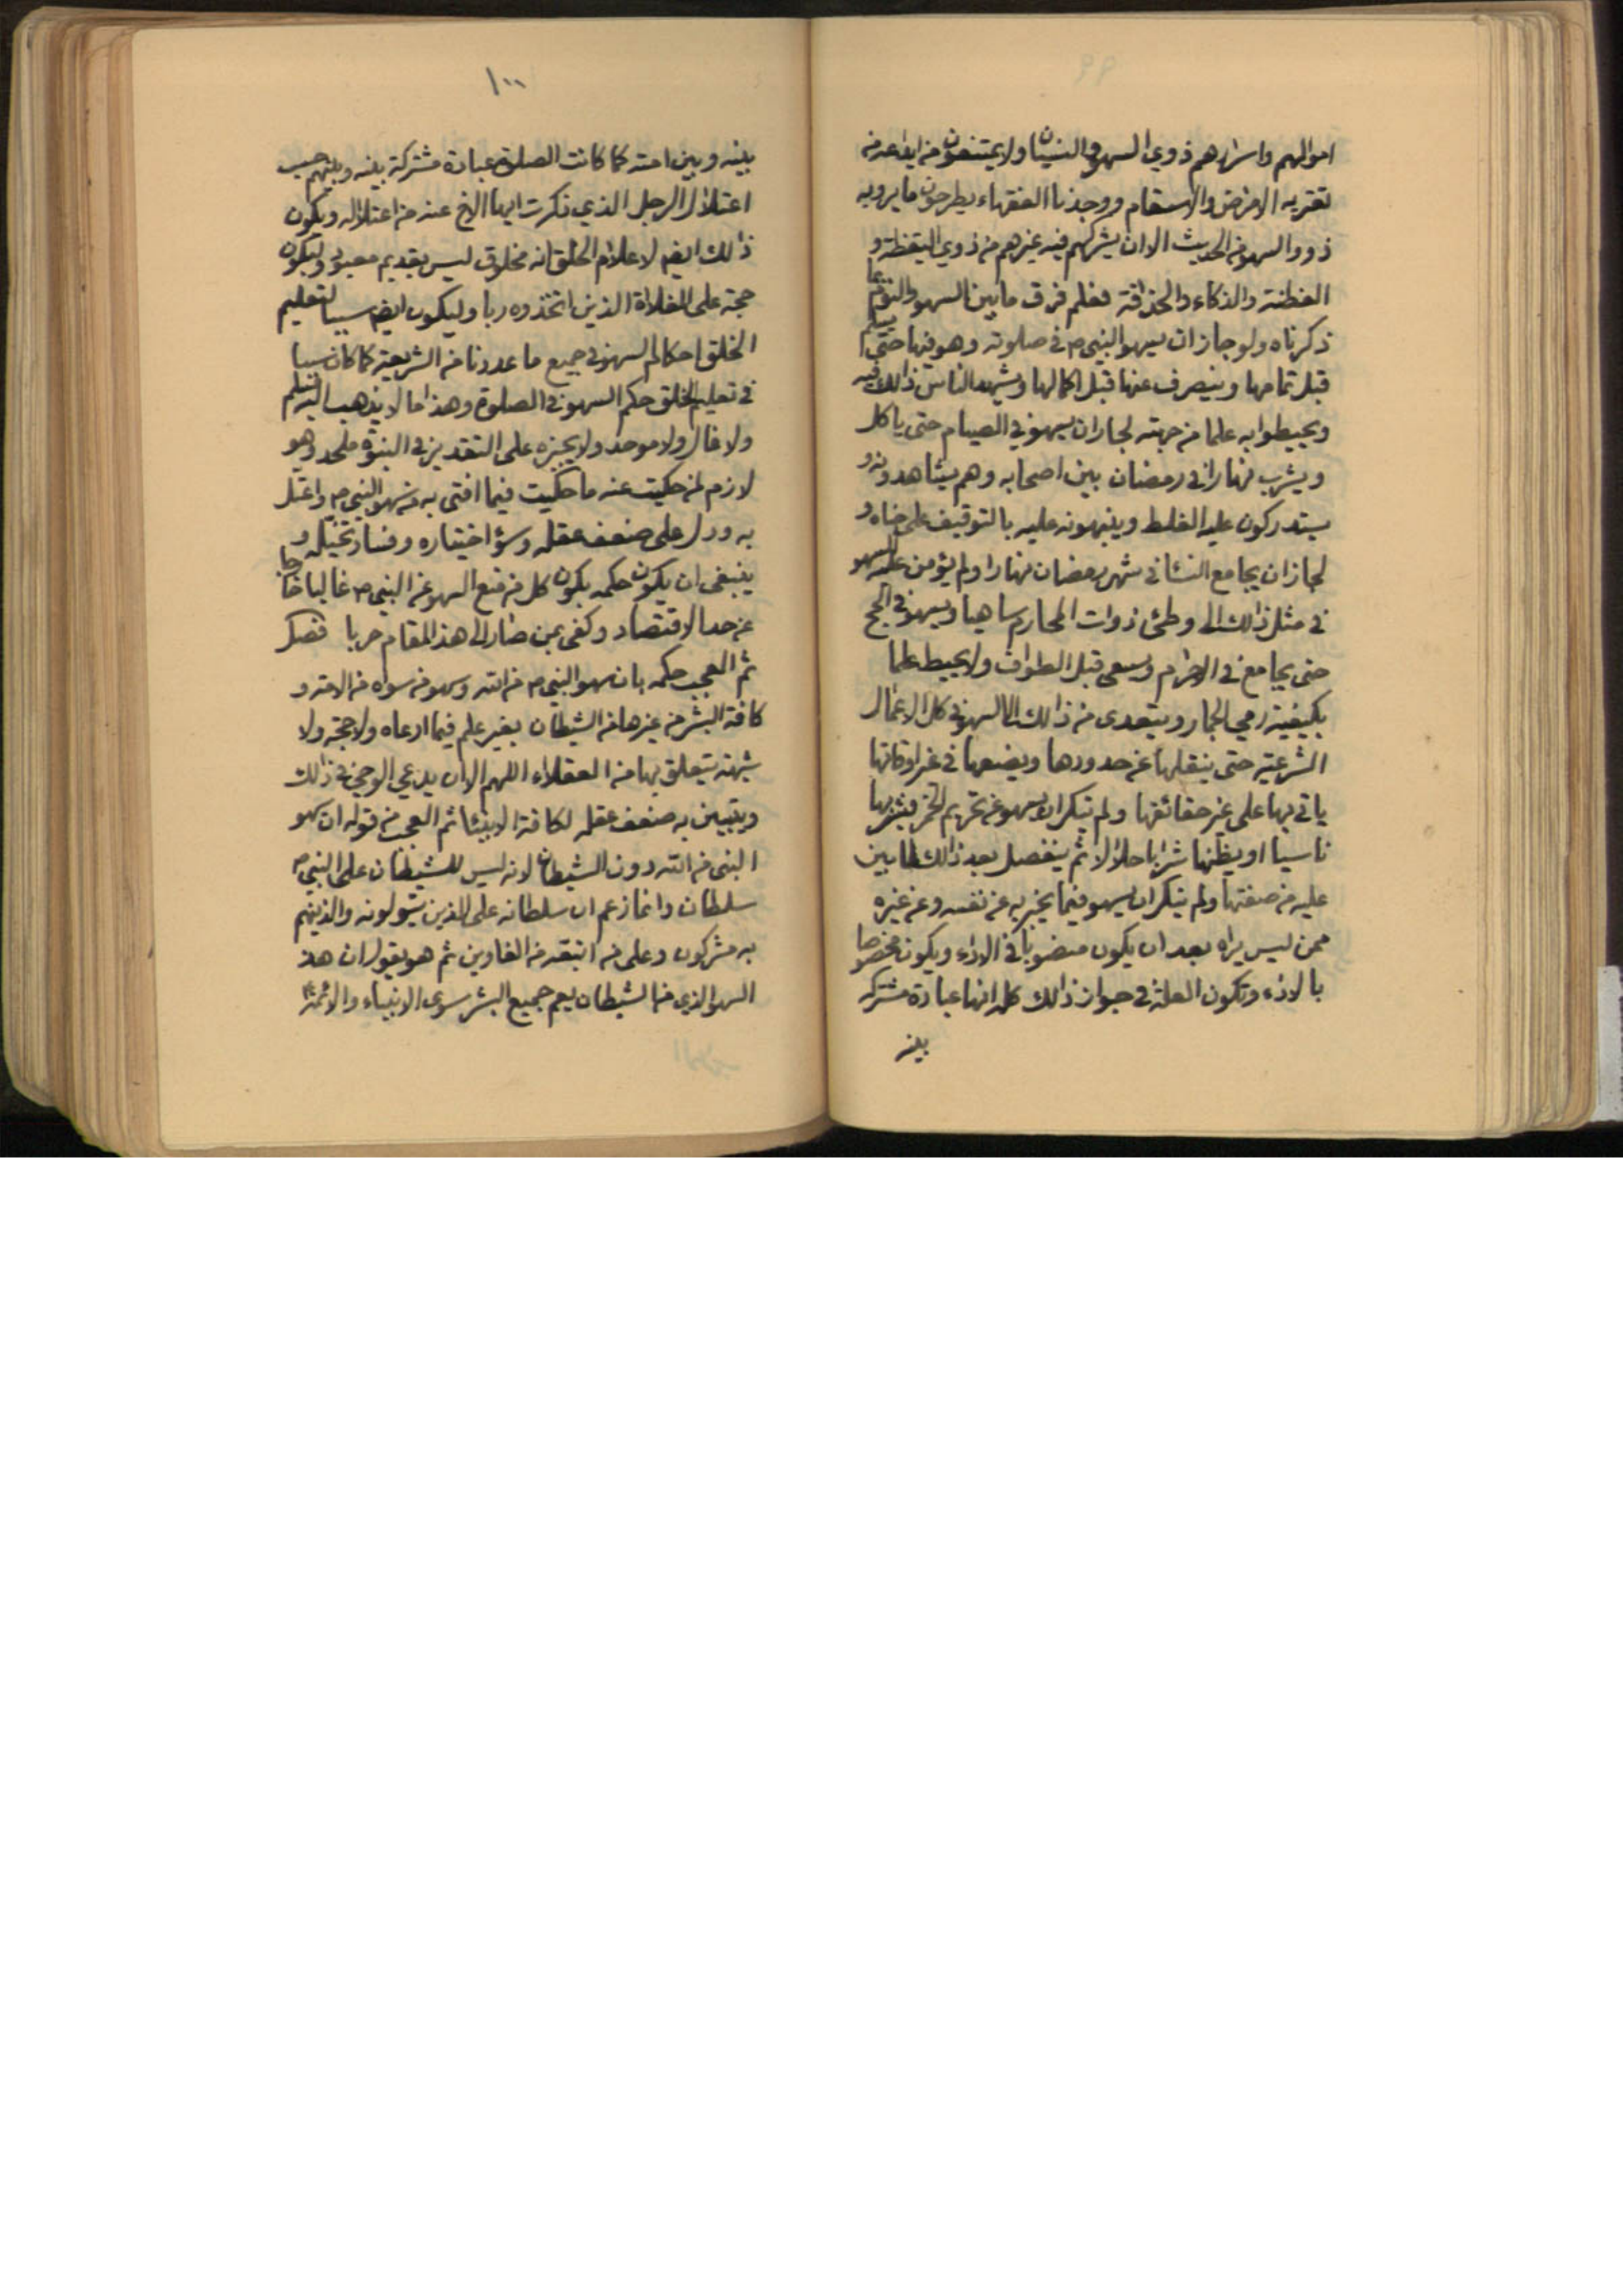 ٩٩
اموالهم واسرارهم ذوي السهو والنسيان ولا يمتنعون من ايداعه من
تعتريه الامراض والاسقام ووجدنا الفقهاء يطرحون ما يرويه
ذووا السهو من الحديث الا ان يشركهم فيه غيرهم من ذوي اليقظة و
الفطنة والذكاء والحذاقة فعلم فرق ما بين السهو والنوم بما
ذكرناه ولو جاز ان يسهو النبي ص في صلوته وهو فيها حتى يسلم
قبل تمامها وينصرف عنها قبل اكمالها ويشهد الناس ذلك فيه
ويحيطوا به علما من جهته لجاز ان يسهو في الصيام حتى ياكل
ويشرب نهارا في رمضان بين اصحابه وهم يشاهدونه و
يستدركون عليه الغلط وينبهونه عليه بالتوقيف على ما جناه و
لجاز ان يجامع النسا في شهر رمضان نهارا ولم يؤمن عليه السهو
في مثل ذلك الى وطئ ذوات المحارم ساهيا ويسهو في الحج
حتى يجامع في الاحرام ويسعى قبل الطواف ولا يحيط علما
بكيفية رمي الجمار ويتعدى من ذلك الى السهو في كل الاعمال
الشرعية حتى ينقلها عن حدودها ويضعها في غير اوقاتها
ياتي بها على غير حقائقها ولم ينكر ان يسهو عن تحريم الخمر فيشربها
ناسيا او يظنها شرابا حلالا ثم ينفصل بعد ذلك لما بين
عليه من صفتها ولم ينكر ان يسهو فيما يخبر به عن نفسه وعن غيره
ممن ليس يراه بعد ان يكون منصوبا في الاداء ويكون مخصوصا
بالاداء وتكون العلة في جواز ذلك كله انها عبادة مشتركه
بينه
١٠٠
بينه وبين امته كما كانت الصلوة عبادة مشتركة بينه وبينهم حسب
اعتلال الرجل الذي ذكرت ايها الاخ عنه من اعتلاله ويكون
ذلك ايض لاعلام الخلق انه مخلوق ليس بقديم معبود وليكون
حجة على الغلاة الذين اتخذوه ربا وليكون ايض سببا لتعليم
الخلق احكام السهو في جميع ما عددنا من الشريعة كما كان سببا
في تعليم الخلق حكم السهو في الصلوة وهذا ما لا يذهب اليه مسلم
ولا غال ولا موحد ولا يجيزه على التقدير في النبوة ملحد وهو
لازم لمن حكيت عنه ما حكيت فيما افتى به من سهو النبي ص واعتل
به ودل على ضعف عقله وسؤ اختياره وفساد تخيله و
ينبغي ان يكون حكمه يكون كل من منع السهو عن النبي ص غاليا خارجا
عن حد الاقتصاد وكفى بمن صار الى هذا المقام خزيا فصل
ثم العجب حكمه بان سهو النبي ص من الله وسهو من سواه من الامة و
كافة البشر من غيرها من الشيطان بغير علم فيما ادعاه ولا حجة ولا
شبهة يتعلق بها من العقلاء اللهم الا ان يدعي الوحي في ذلك
ويتبين به ضعف عقله لكافة الالبا ثم العجب من قوله ان سهو
النبي من الله دون الشيطان لانه ليس للشيطان على النبي ص
سلطان وانما زعم ان سلطانه على الذين يتولونه والذينهم
به مشركون وعلى من اتبعه من الغاوين ثم هو يقول ان هذا
السهو الذي من الشيطان يعم جميع البشر سوى الانبياء والائمة